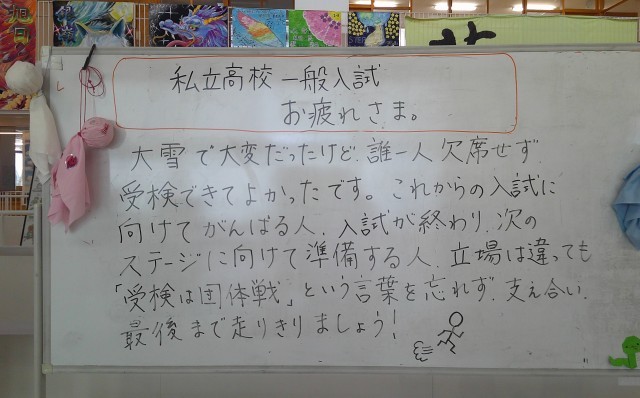 私立高校 一般入試
お疲れさま。
大雪で大変だったけど、誰一人欠席せず
受検できてよかったです。これからの入試に
向けてがんばる人、入試が終わり、次の
ステージに向けて準備する人、立場は違っても
「受検は団体戦」という言葉を忘れず、支え合い、
最後まで走りきりましょう！